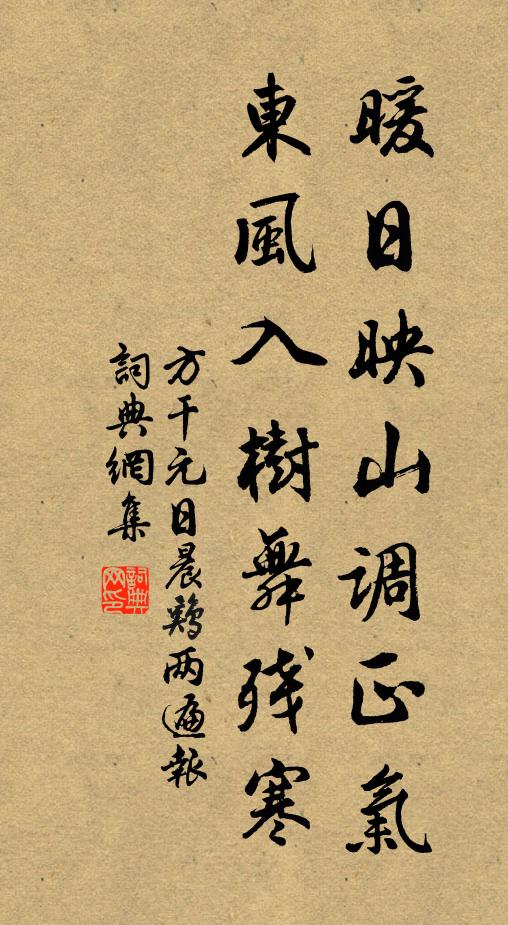 暖日映山调正氣
東風入樹舞残寒
方干元日晨鶏两遍報
詞典網集
詞典网印